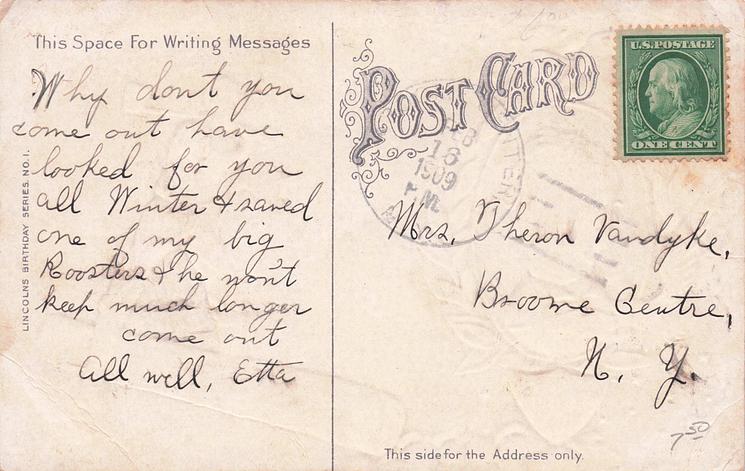 This Space For Writing Messages
Why dont you
come out have
looked for you
all Winter & saved
one of my big
Roosters & he won't
keep much longer
come out
All well, Etta
LINCOLNS BIRTHDAY SERIES. NO. 1.
POST CARD
U.S. POSTAGE
ONE CENT
16
1909
Mrs. Theron Vandyke,
Broome Centre,
N. Y.
7 50
This side for the Address only.